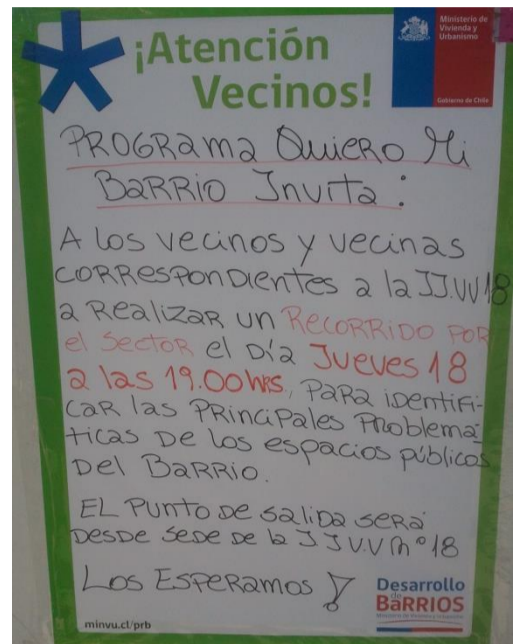 ¡Atención
Vecinos!
Ministerio de
Vivienda y
Urbanismo
Gobierno de Chile
PROGRama Quiero Mi
BaRRio Invita:
A los vecinos y vecinas
CORRespondientes a la JJ.VV 18
a Realizar un RecoRRido poR
el Sector el Día Jueves 18
a las 19.00 hrs, paRa identifi-
caR las PRincipales pRoblemá-
ticas De los espacios públicos
Del BaRRio.
EL Punto de salida será
Desde Sede de la JJ V.V nº 18
Los Esperamos!
Desarrollo
de
BaRRIOS
Ministerio de Vivienda y Urbanismo
minvu.cl/prb